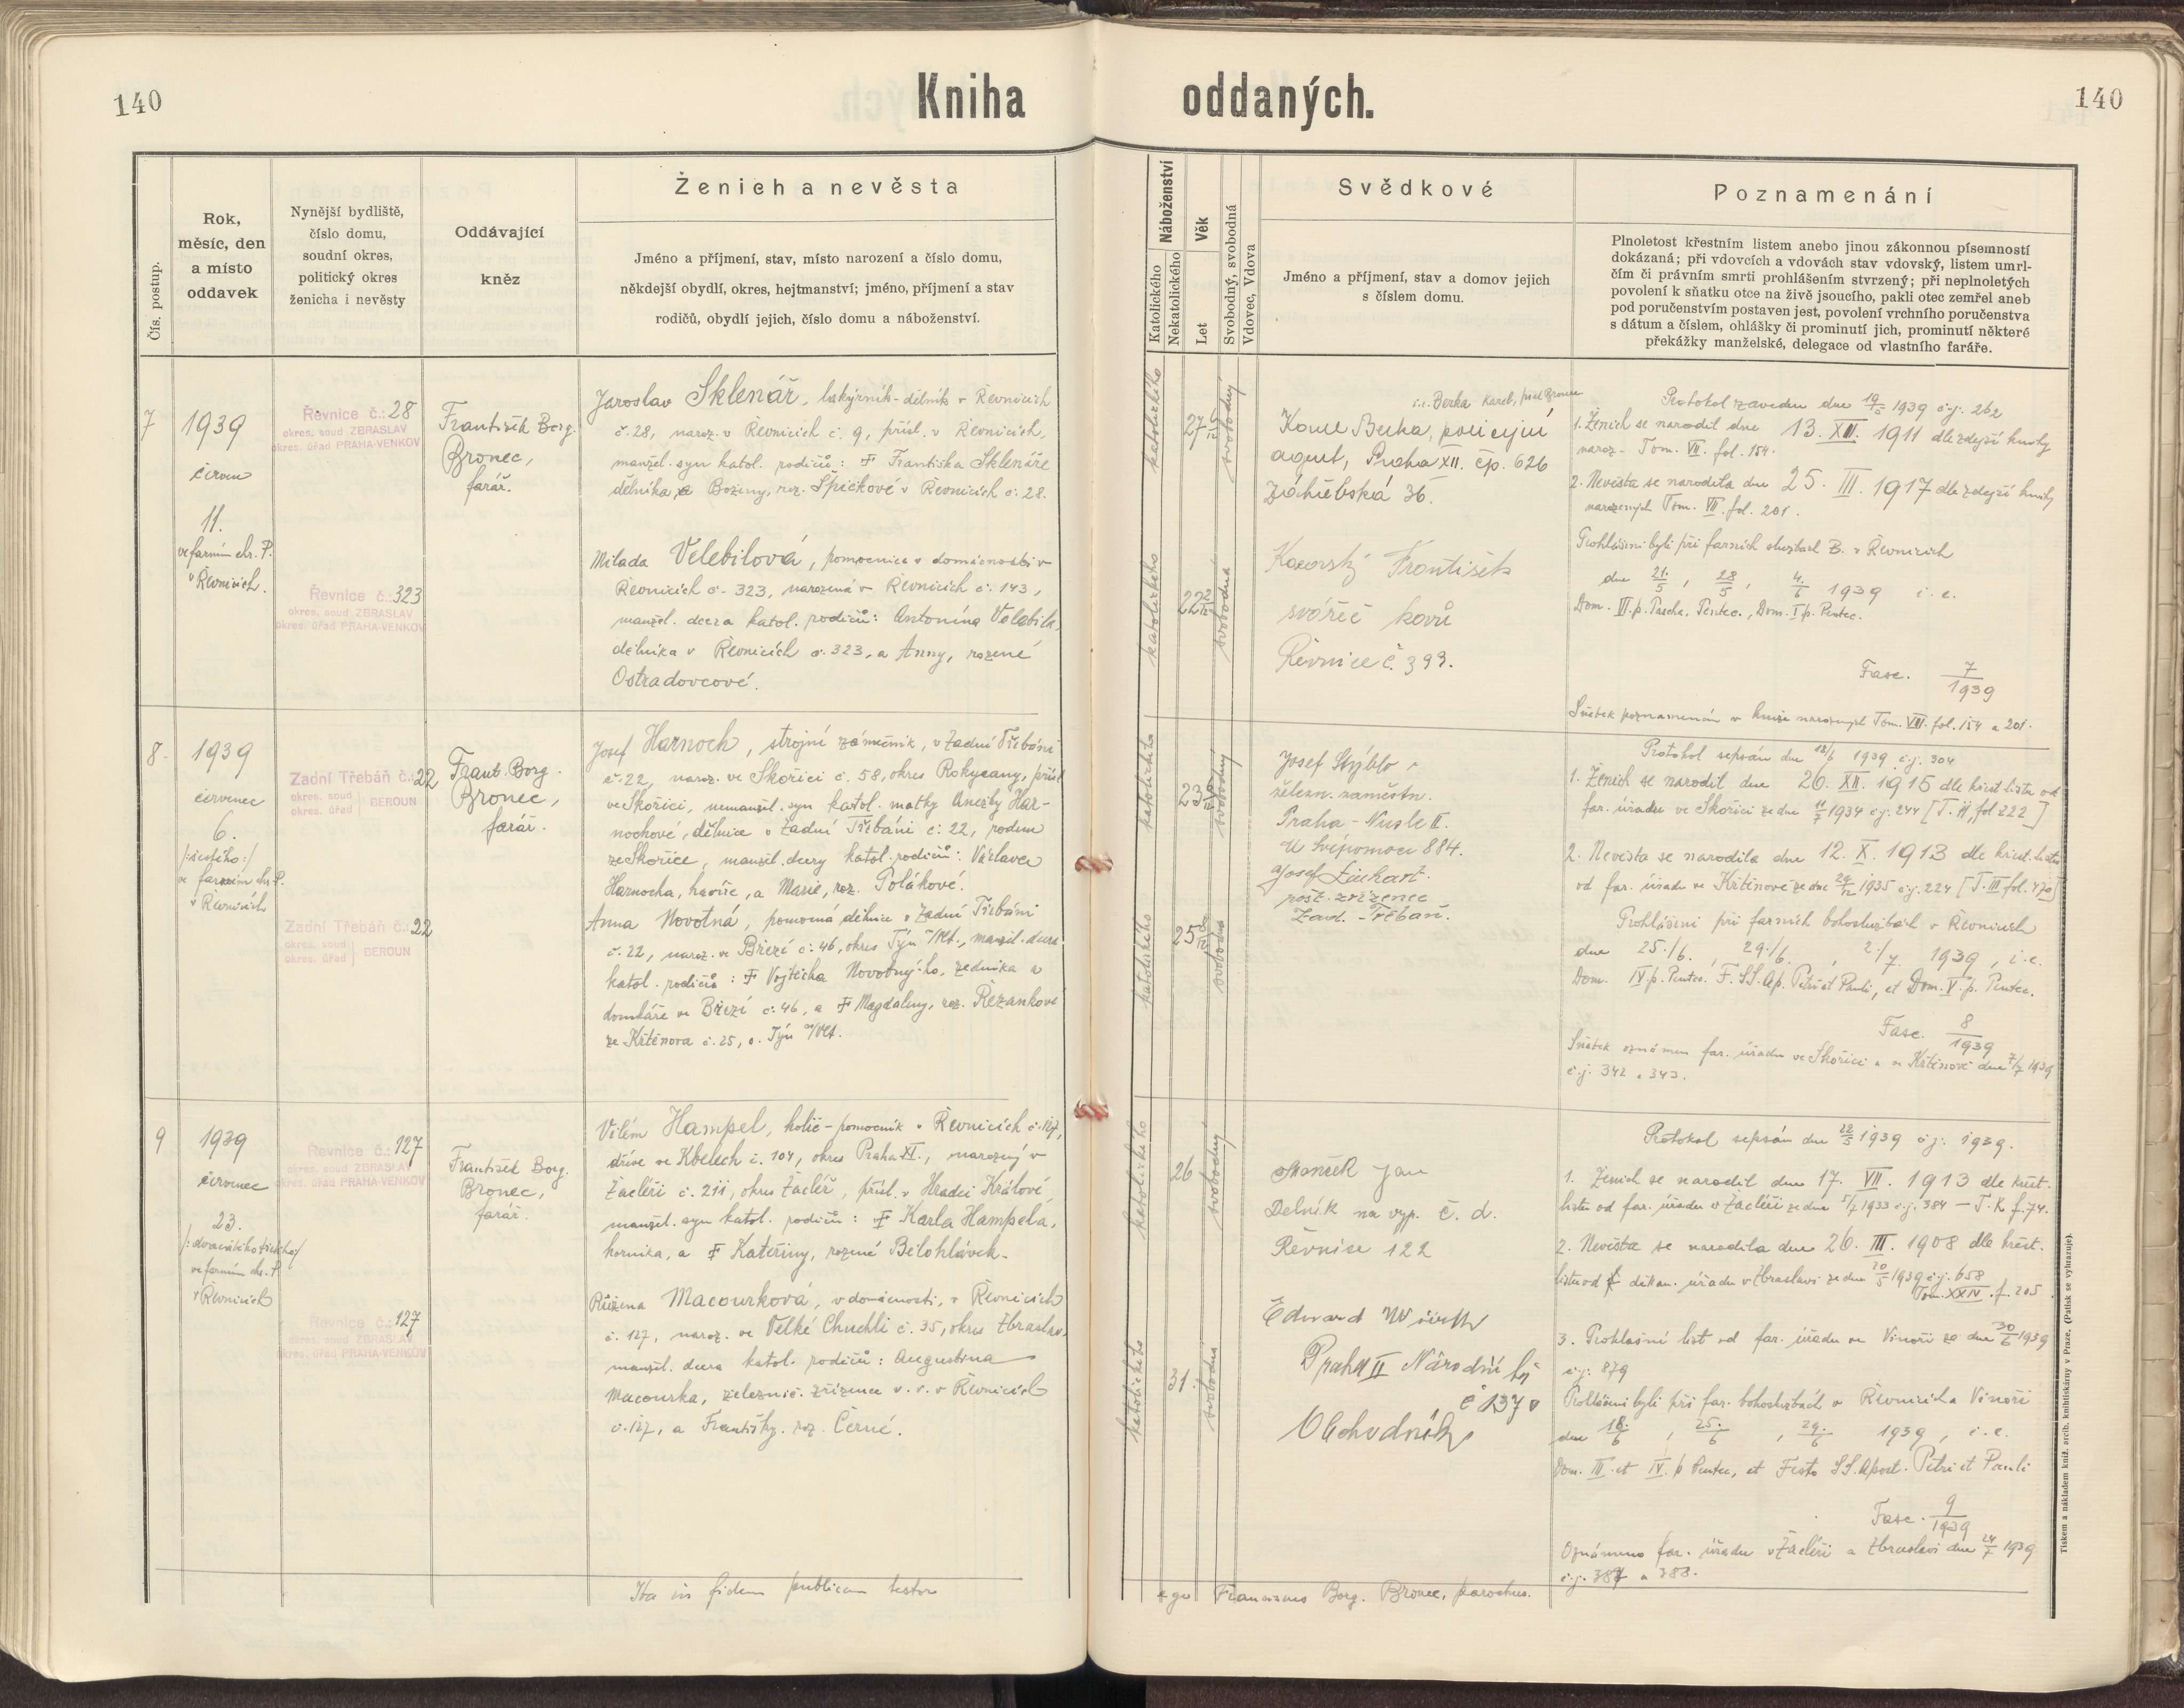 140
Kniha oddaných.
140
Čís. postup.
Rok,
měsíc, den
a místo
oddavek
Nynější bydliště,
číslo domu,
soudní okres,
politický okres
ženicha i nevěsty
Oddávající
kněz
Ženich a nevěsta
Jméno a příjmení, stav, místo narození a číslo domu,
někdejší obydlí, okres, hejtmanství; jméno, příjmení a stav
rodičů, obydlí jejich, číslo domu a náboženství.
Náboženství
Katolického
Nekatolického
Věk
Let
Svobodný, svobodná
Vdovec, Vdova
Svědkové
Jméno a příjmení, stav a domov jejich
s číslem domu.
Poznamenání
Plnoletost křestním listem anebo jinou zákonnou písemností
dokázaná; při vdovcích a vdovách stav vdovský, listem umrl-
čím či právním smrti prohlášením stvrzený; při neplnoletých
povolení k sňatku otce na živě jsoucího, pakli otec zemřel aneb
pod poručenstvím postaven jest, povolení vrchního poručenstva
s dátum a číslem, ohlášky či prominutí jich, prominutí některé
překážky manželské, delegace od vlastního faráře.
7
1939
červen
11.
ve farním chr. P.
v Řevnicích.
Řevnice č.: 28
okres. soud ZBRASLAV
okres. úřad PRAHA-VENKOV
Řevnice č.: 323
okres. soud ZBRASLAV
okres. úřad PRAHA-VENKOV
František Borg.
Bronec,
farář.
Jaroslav Sklenář, lakýrník-dělník v Řevnicích
č. 28, naroz. v Řevnicích č. 9, přísl. v Řevnicích,
manžel. syn katol. rodičů: † Františka Sklenáře
dělníka, a Boženy, roz. Špičkové v Řevnicích č. 28.
Milada Velebilová, pomocnice v domácnosti v
Řevnicích č. 323, narozená v Řevnicích č. 143,
manžel. dcera katol. rodičů: Antonína Velebila,
dělníka v Řevnicích č. 323, a Anny, rozené
Ostradovcové.
katolického
27
svobodný
katolického
22
svobodná
i.e. Berka Karel, před Bronec
Karel Berka, policejní
agent, Praha XII. čp. 626
Záhřebská 36.
Kovorský František
svářeč kovů
Řevnice č. 393.
Protokol zaveden dne 19/5 1939 č.j. 262
1. Ženich se narodil dne 13. XII. 1911 dle zdejší knihy
naroz. Tom. VII. fol. 154.
2. Nevěsta se narodila dne 25. III. 1917 dle zdejší knihy
narozených Tom. VII. fol. 201.
Prohlášeni byli při farních službách B. v Řevnicích
dne 21./5, 28/5, 4./6 1939 i. e.
Dom. III. p. Pascha, Pentec., Dom. I. p. Pentec.
Fasc. 7/1939
Sňatek poznamenán v knize narozených Tom. VII. fol. 154 a 201.
8.
1939
červenec
6.
/:šestého:/
ve farním chr. P.
v Řevnicích
Zadní Třebáň č.: 22
okres. soud
okres. úřad
BEROUN
Zadní Třebáň č.: 22
okres. soud
okres. úřad
BEROUN
Frant. Borg.
Bronec,
farář.
Josef Harnoch, strojní zámečník, v Zadní Třebáni
č. 22, naroz. ve Skořici č. 58, okres Rokycany, přísl.
ve Skořici, nemanžel. syn katol. matky Anežky Har-
nochové, dělnice v Zadní Třebáni č. 22, rodem
ze Skořice, manžel. dcery katol. rodičů: Václava
Harnocha, havíře, a Marie, roz. Polákové.
Anna Novotná, pomocná dělnice v Zadní Třebáni
č. 22, naroz. ve Březí č. 46, okres Týn n/Vlt., manžel. dcera
katol. rodičů: † Vojtěcha Novotného, zedníka a
domkáře ve Březí č. 46, a † Magdaleny, roz. Řezankové
ze Křtěnova č. 25, o. Týn n/Vlt.
katolického
23
svobodný
katolického
25
svobodná
Josef Stýblo
železn. zaměstn.
Praha - Nusle II.
U Svépomoci 884.
Josef
pošt. zřízenec
Zad. Třebáň.
Protokol sepsán dne 18/6 1939 č.j. 304
1. Ženich se narodil dne 26. XII. 1915 dle křest. listu od
far. úřadu ve Skořici ze dne 11/7 1934 č.j. 244 [T. II, fol 222]
2. Nevěsta se narodila dne 12. X. 1913 dle křest. listu
od far. úřadu ve Křtěnově ze dne 24/12 1935 č.j. 224 [T. III fol. 470]
Prohlášeni při farních bohoslužbách v Řevnicích
dne 25./6., 29./6., 2./7. 1939, i. e.
Dom. IV p. Pentec. F. SS. Ap. Petri et Pauli, et Dom. V. p. Pentec.
Fasc. 8/1939
Sňatek oznámen far. úřadu ve Skořici a ve Křtěnově dne 7/7 1939
č.j. 342 a 343.
9
1939
červenec
23.
/:dvacátého třetího:/
ve farním chr. P.
v Řevnicích
Řevnice č.: 127
okres. soud ZBRASLAV
okres. úřad PRAHA-VENKOV
Řevnice č.: 127
okres. soud ZBRASLAV
okres. úřad PRAHA-VENKOV
František Borg.
Bronec,
farář.
Vilém Hampel, holič-pomocník v Řevnicích č. 127,
dříve ve Kbelích č. 104, okres Praha XI., narozený v
Žacléři č. 211, okres Žacléř, přísl. v Hradci Králové,
manžel. syn katol. rodičů: † Karla Hampela,
horníka, a † Kateřiny, rozené Bělohlávek.
Růžena Macourková, v domácnosti, v Řevnicích
č. 127, naroz. ve Velké Chuchli č. 35, okres Zbraslav,
manžel. dcera katol. rodičů: Augustina
Macourka, železnič. zřízence v. v. v Řevnicích
č. 127, a Františky, roz. Černé.
katolického
26
svobodný
katolického
31.
svobodná
Maňsek Jan
Dělník na vyp. č. d.
Řevnise 122
Edvard
Praha II Národní tř
č 37
Obchodník
Protokol sepsán dne 22/5 1939 č.j. 1939.
1. Ženich se narodil dne 17. VII. 1913 dle křest.
listu od far. úřadu v Žacléři ze dne 5/7 1933 č.j. 384 — T. K f. 74.
2. Nevěsta se narodila dne 26. III. 1908 dle křest.
listu od děkan. úřadu v Zbraslavi ze dne 20/5 1939 č.j. 658
Tom. XXIV. f. 205.
3. Prohlašní list od far. úřadu ve Vinoři ze dne 30/6 1939
č.j. 879
Prohlášeni byli při far. bohoslužbách v Řevnicích a Vinoři
dne 18./6, 25./6, 29./6 1939, i. e.
Dom. III. et IV. p Pentec, et Festo SS. Apost. Petri et Pauli
Fasc. 9/1939
Oznámeno far. úřadu v Žacléři a Zbraslavi dne 24/7 1939
č.j. 387 a 388.
Ita in fidem publicam testor
ego Franciscus Borg. Bronec, parochus.
Tiskem a nákladem kníž. arcib. knihtiskárny v Praze. (Patisk se vyhrazuje).